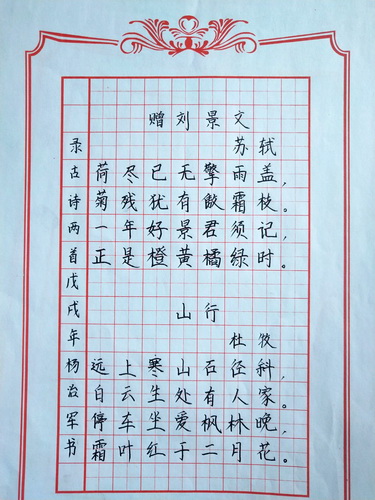 赠刘景文
苏轼
荷尽已无擎雨盖，
菊残犹有傲霜枝。
一年好景君须记，
正是橙黄橘绿时。
山行
杜牧
远上寒山石径斜，
白云生处有人家。
停车坐爱枫林晚，
霜叶红于二月花。
录古诗两首戊戌年杨治军书